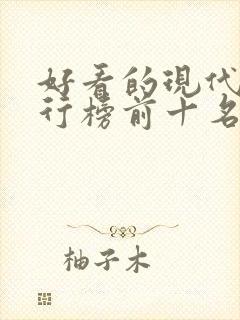 好看的现代
行榜前十名
柚子木